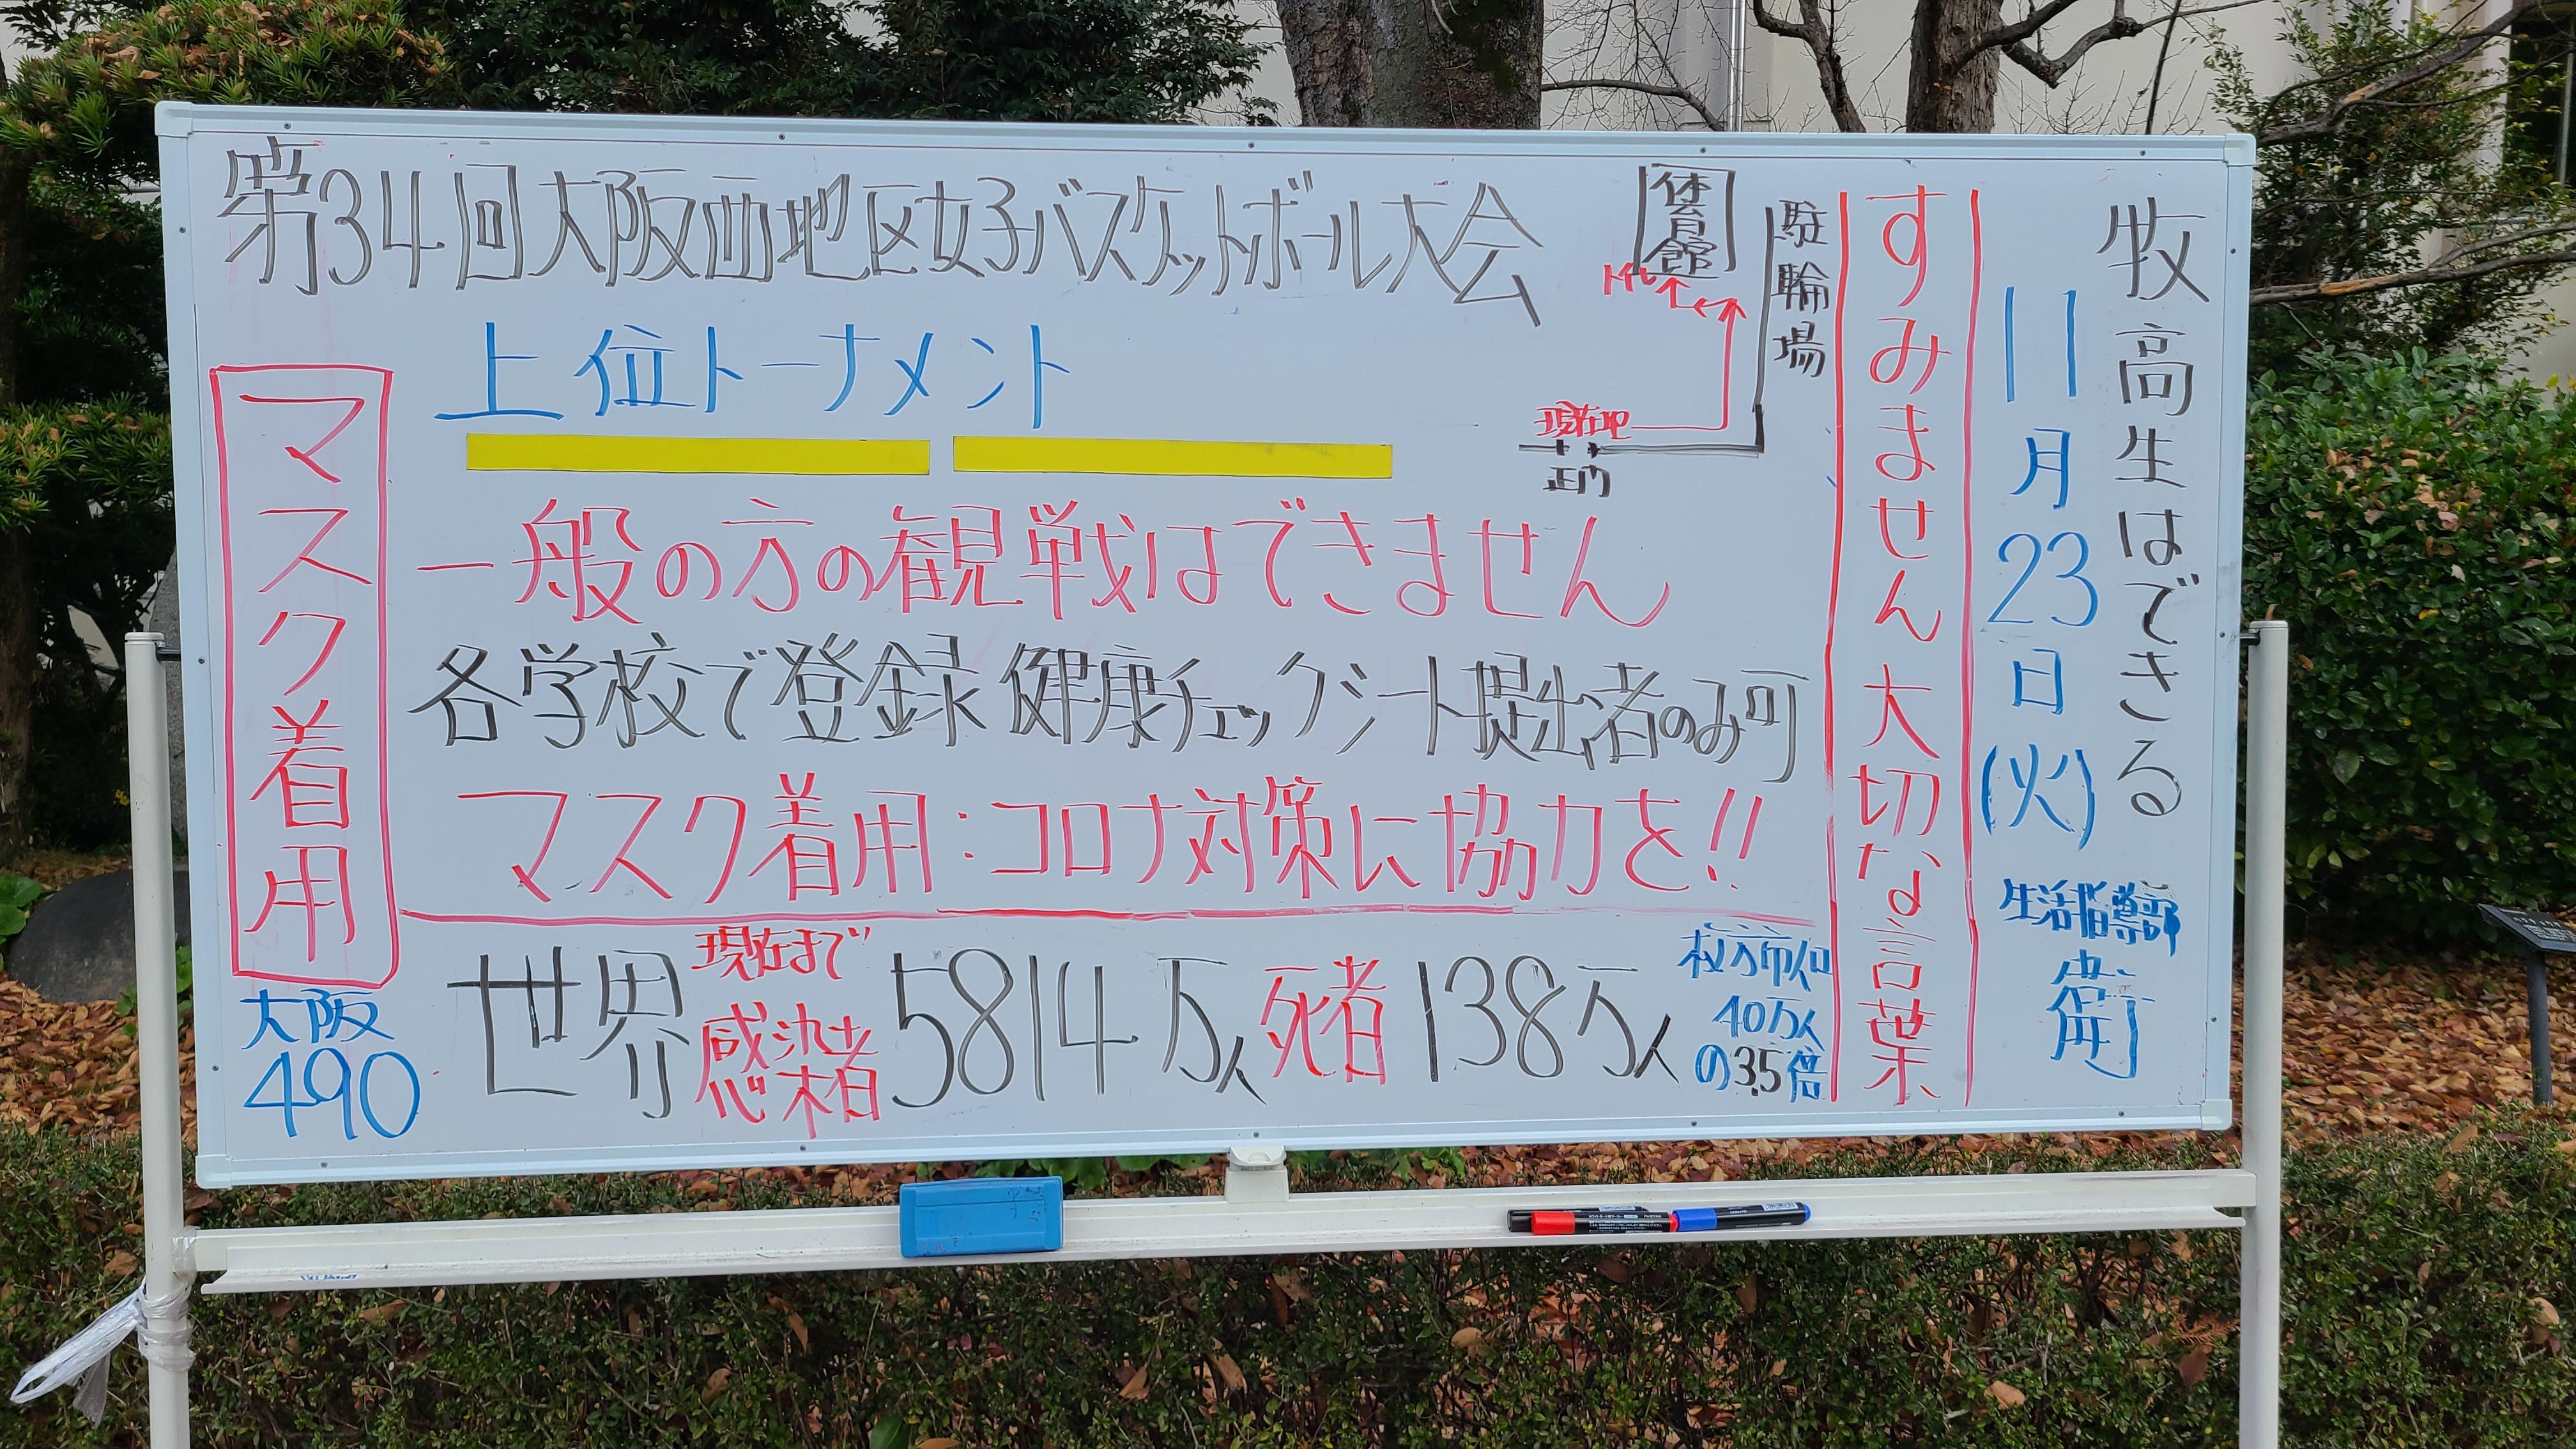 牧高生はできる
11月23日(火)
生活指導部
衛
すみません 大切な言葉
第34回大阪西地区女子バスケットボール大会
体育館
駐輪場
トイレ
現在地
正門
上位トーナメント
マスク着用
一般の方の観戦はできません
各学校で登録 健康チェックシート提出者のみ可
マスク着用:コロナ対策に協力を!!
大阪
490
世界 現在まで 感染者 5814万人 死者 138万人
枚方市人口
40万人
の3.5倍